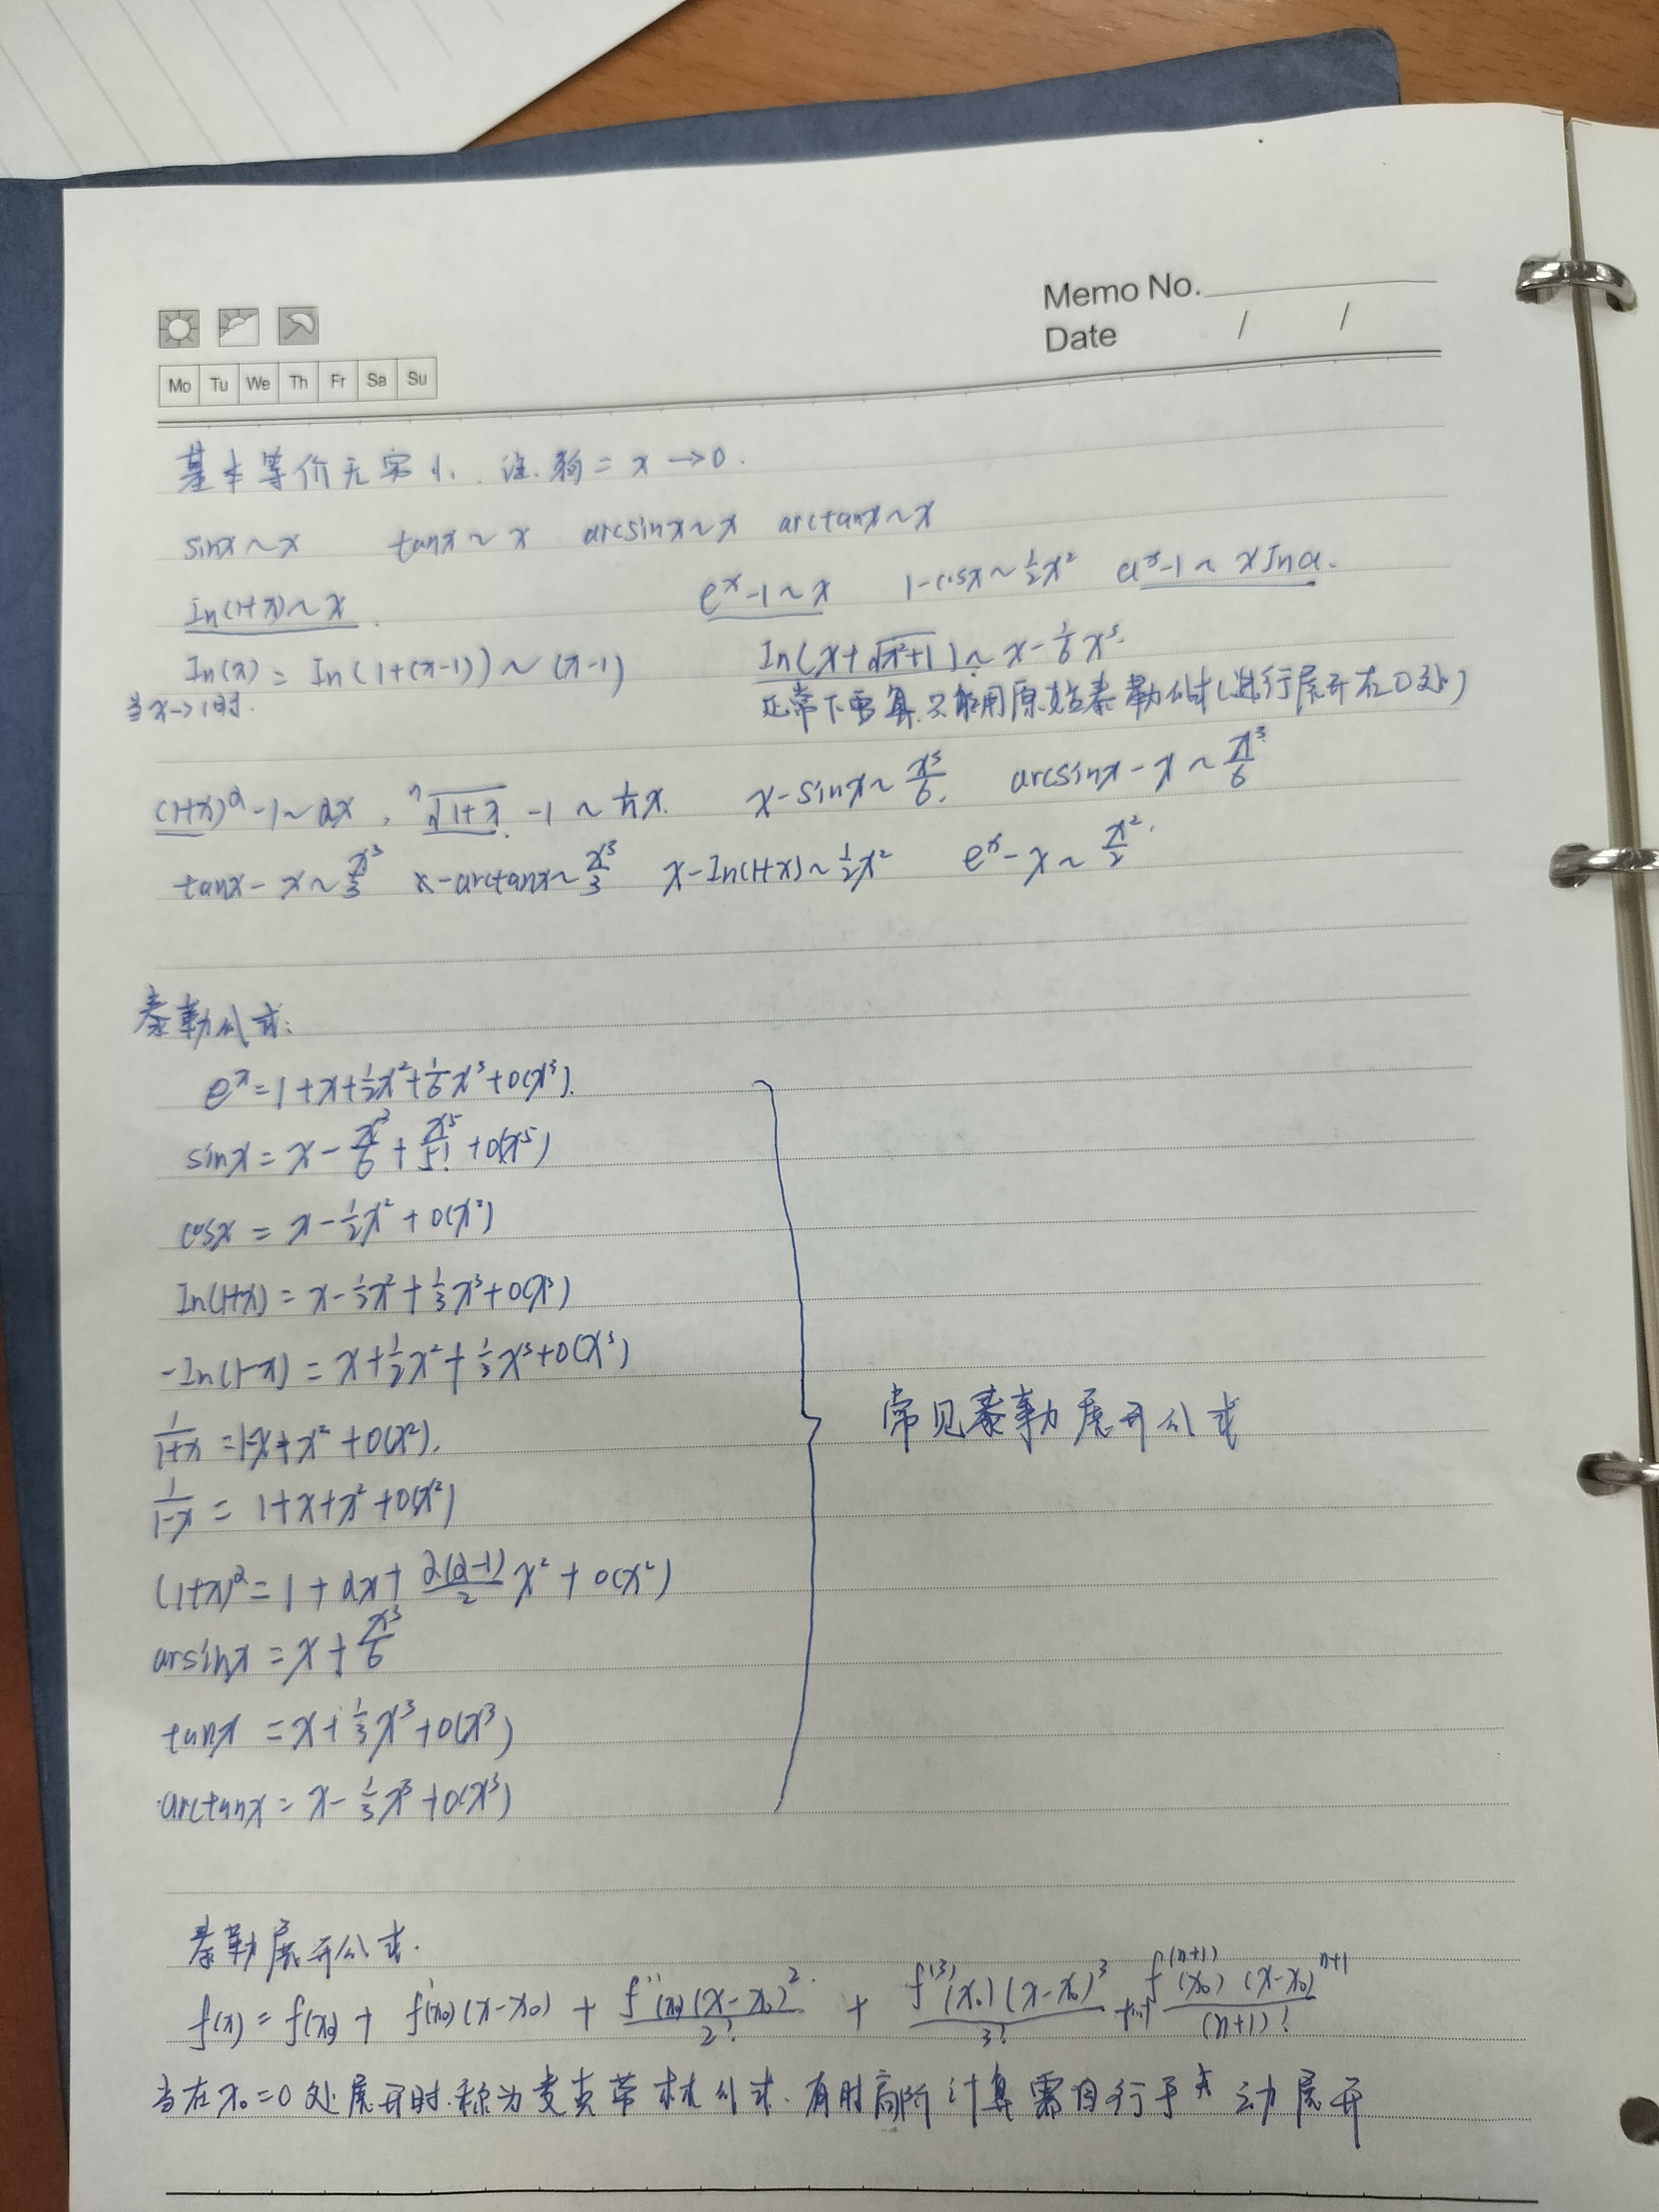 Memo No.
Date / /
Mo Tu We Th Fr Sa Su
基本等价无穷小. 注. 狗 = x→0.
sinx~x tanx~x arcsinx~x arctanx~x
ln(1+x)~x. e^x-1~x 1-cosx~1/2x² a^x-1~xlna.
ln(x)=ln(1+(x-1))~(x-1) ln(x+√(x²+1))~x-1/6x³.
当x→1时. 正常下要算.只能用原始泰勒公式(进行展开在0处)
(1+x)^α-1~αx, ⁿ√(1+x)-1~1/n x. x-sinx~x³/6. arcsinx-x~x³/6
tanx-x~x³/3 x-arctanx~x³/3 x-ln(1+x)~1/2x² e^x-x~x²/2.
泰勒公式:
e^x=1+x+1/2x²+1/6x³+o(x³).
sinx=x-x³/6+x⁵/5!+o(x⁵)
cosx=x-1/2x²+o(x²)
ln(1+x)=x-1/2x²+1/3x³+o(x³)
-ln(1-x)=x+1/2x²+1/3x³+o(x³)
常见泰勒展开公式
1/(1+x)=1-x+x²+o(x²).
1/(1-x)=1+x+x²+o(x²)
(1+x)^α=1+αx+α(α-1)/2 x²+o(x²)
arsinx=x+x³/6
tanx=x+1/3x³+o(x³)
arctanx=x-1/3x³+o(x³)
泰勒展开公式.
f(x)=f(x₀)+f'(x₀)(x-x₀)+f''(x₀)(x-x₀)²/2!+f⁽³⁾(x₀)(x-x₀)³/3!+…+f⁽ⁿ⁺¹⁾(x₀)(x-x₀)ⁿ⁺¹/(n+1)!
当在x₀=0处展开时.称为麦克劳林公式.有时高阶计算需自行手动展开